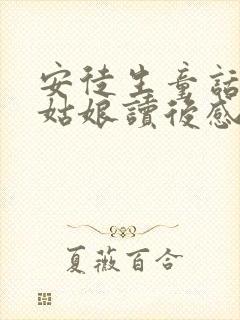 安徒生童話
姑娘讀後感
夏薇百合